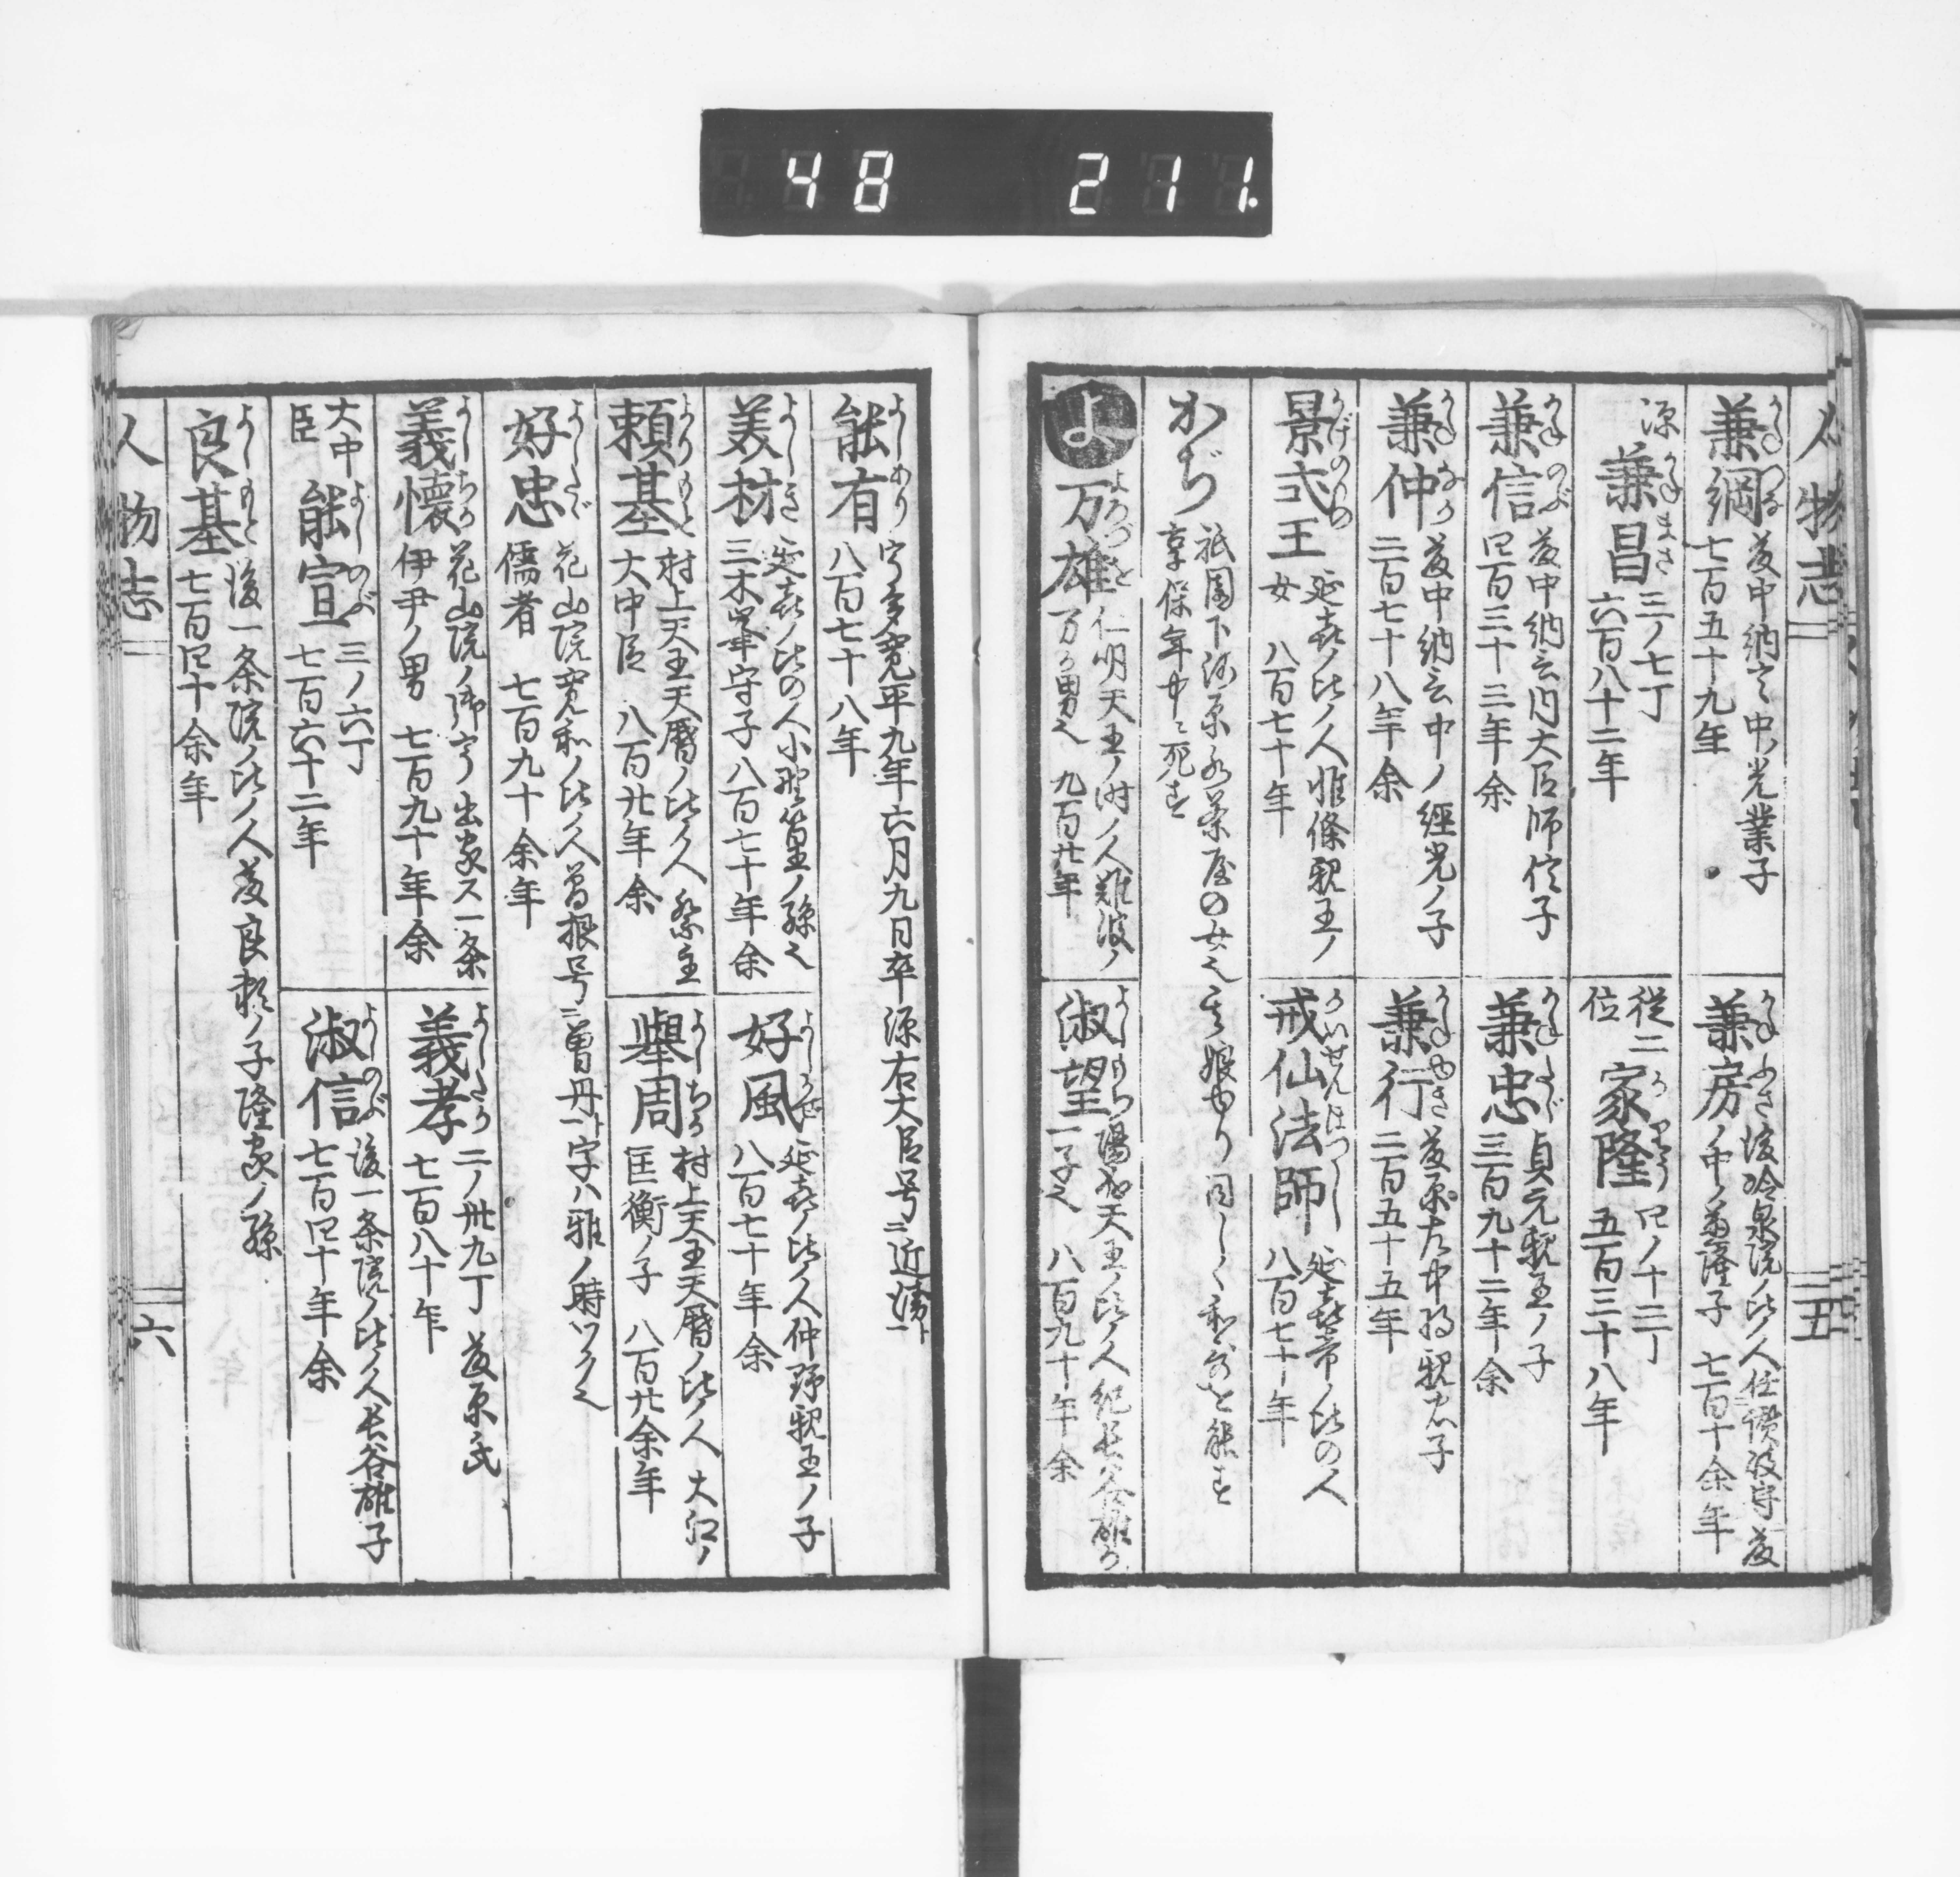 48 211.
人物志
五
兼綱 かねつな
藤中納言中光業子
七百五十九年
兼房 かねふさ
後冷泉院ノ比ノ人任讃岐守藤
ノ中ノ兼隆子 七百十余年
源 兼昌 かねまさ
三ノ七丁
六百八十二年
従二位 家隆 かりう
四ノ十三丁
五百三十八年
兼信 かねのぶ
藤中納言内大臣師信子
四百三十三年余
兼忠 かねたゞ
貞元親王ノ子
三百九十二年余
兼仲 かねなか
藤中納言中ノ經光ノ子
二百七十八年余
兼行 かねゆき
藤原左中将親忠子
二百五十五年
景式王 かげのりの
延喜ノ比ノ人惟條親王ノ
女 八百七十年
戒仙法師 かいせんほつし
延喜帝ノ比の人
八百七十年
かぢ
祇園下河原水茶屋の女也 其娘ゆり同しく和哥を能す
享保年中ニ死す
よ
万雄 よろづを
仁明天王ノ時ノ人難波ノ
万ガ男也 九百廿年
淑望 よしもち
陽成天王ノ比ノ人紀長谷雄ガ
一子也 八百九十年余
能有 よしあり
宇多寛平九年六月九日卒 源右大臣号ニ近院ト
八百七十八年
美材 よしき
延喜ノ比の人小野篁ノ孫也
三木峯守子八百七十年余
好風 よしかぜ
延喜ノ比ノ人仲野親王ノ子
八百七十年余
頼基 よりもと
村上天王天暦ノ比ノ人 祭主
大中臣 八百廿年余
擧周 よしちか
村上天王天暦ノ比ノ人 大江ノ
匡衡ノ子 八百廿余年
好忠 よしたゞ
花山院寛和ノ比ノ人曽根号ニ曽丹ト字ハ雅ノ時ツク也
儒者 七百九十余年
義懷 よしちか
花山院ノ御宇出家ス一条
伊尹ノ男 七百九十年余
義孝 よしたか
二ノ卅九丁 藤原氏
七百八十年
大中臣 能宣 よしのぶ
三ノ六丁
七百六十二年
淑信 よしのぶ
後一条院ノ比ノ人長谷雄子
七百四十年余
良基 よしもと
後一条院ノ比ノ人藤良頼ノ子隆家ノ孫
七百四十余年
人物志
六